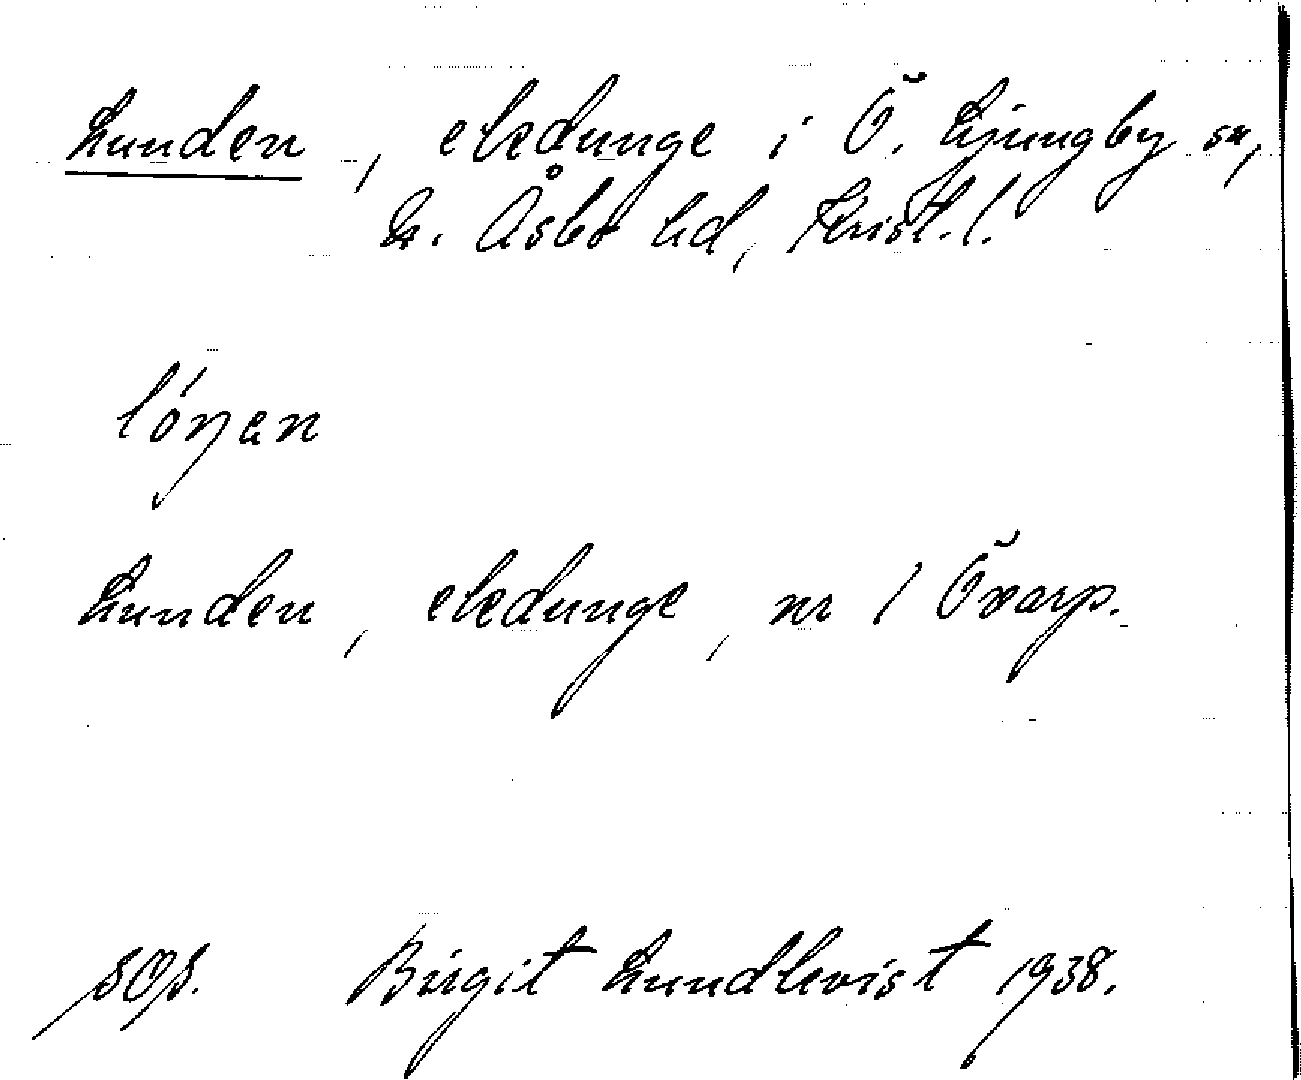 Lunden, ekdunge i Ö. Ljungby sn,
N. Åsbo hd, Krist. l.
lóŋan
Lunden, ekdunge, nr 1 Öxarp.
Birgit Lundkvist 1938.